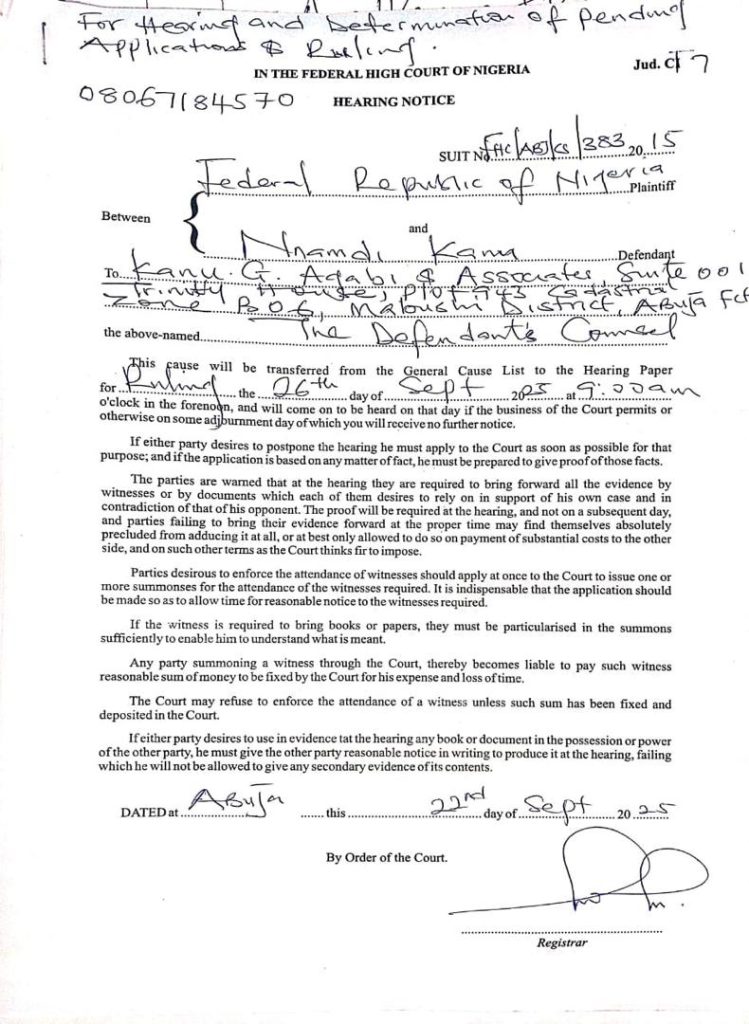 For Hearing and Determination of pending
Applications & Ruling.
IN THE FEDERAL HIGH COURT OF NIGERIA
Jud. CT 7
08067184570
HEARING NOTICE
SUIT No FHC/ABJ/CS/383 20 15
Federal Republic of Nigeria Plaintiff
Between
and
Nnamdi Kanu Defendant
To Kanu. G. Agabi & Associates, Suite 001
Trinity House, Plot 943 Cadastral
Zone B06, Mabushi District, Abuja FCT
the above-named The Defendant's Counsel
This cause will be transferred from the General Cause List to the Hearing Paper
for Ruling the 26th day of Sept 2025 at 9:00am
o'clock in the forenoon, and will come on to be heard on that day if the business of the Court permits or
otherwise on some adjburnment day of which you will receive no further notice.
If either party desires to postpone the hearing he must apply to the Court as soon as possible for that
purpose; and if the application is based on any matter of fact, he must be prepared to give proof of those facts.
The parties are warned that at the hearing they are required to bring forward all the evidence by
witnesses or by documents which each of them desires to rely on in support of his own case and in
contradiction of that of his opponent. The proof will be required at the hearing, and not on a subsequent day,
and parties failing to bring their evidence forward at the proper time may find themselves absolutely
precluded from adducing it at all, or at best only allowed to do so on payment of substantial costs to the other
side, and on such other terms as the Court thinks fir to impose.
Parties desirous to enforce the attendance of witnesses should apply at once to the Court to issue one or
more summonses for the attendance of the witnesses required. It is indispensable that the application should
be made so as to allow time for reasonable notice to the witnesses required.
If the witness is required to bring books or papers, they must be particularised in the summons
sufficiently to enable him to understand what is meant.
Any party summoning a witness through the Court, thereby becomes liable to pay such witness
reasonable sum of money to be fixed by the Court for his expense and loss of time.
The Court may refuse to enforce the attendance of a witness unless such sum has been fixed and
deposited in the Court.
If either party desires to use in evidence tat the hearing any book or document in the possession or power
of the other party, he must give the other party reasonable notice in writing to produce it at the hearing, failing
which he will not be allowed to give any secondary evidence of its contents.
DATED at Abuja this 22nd day of Sept 20 25
By Order of the Court.
Registrar